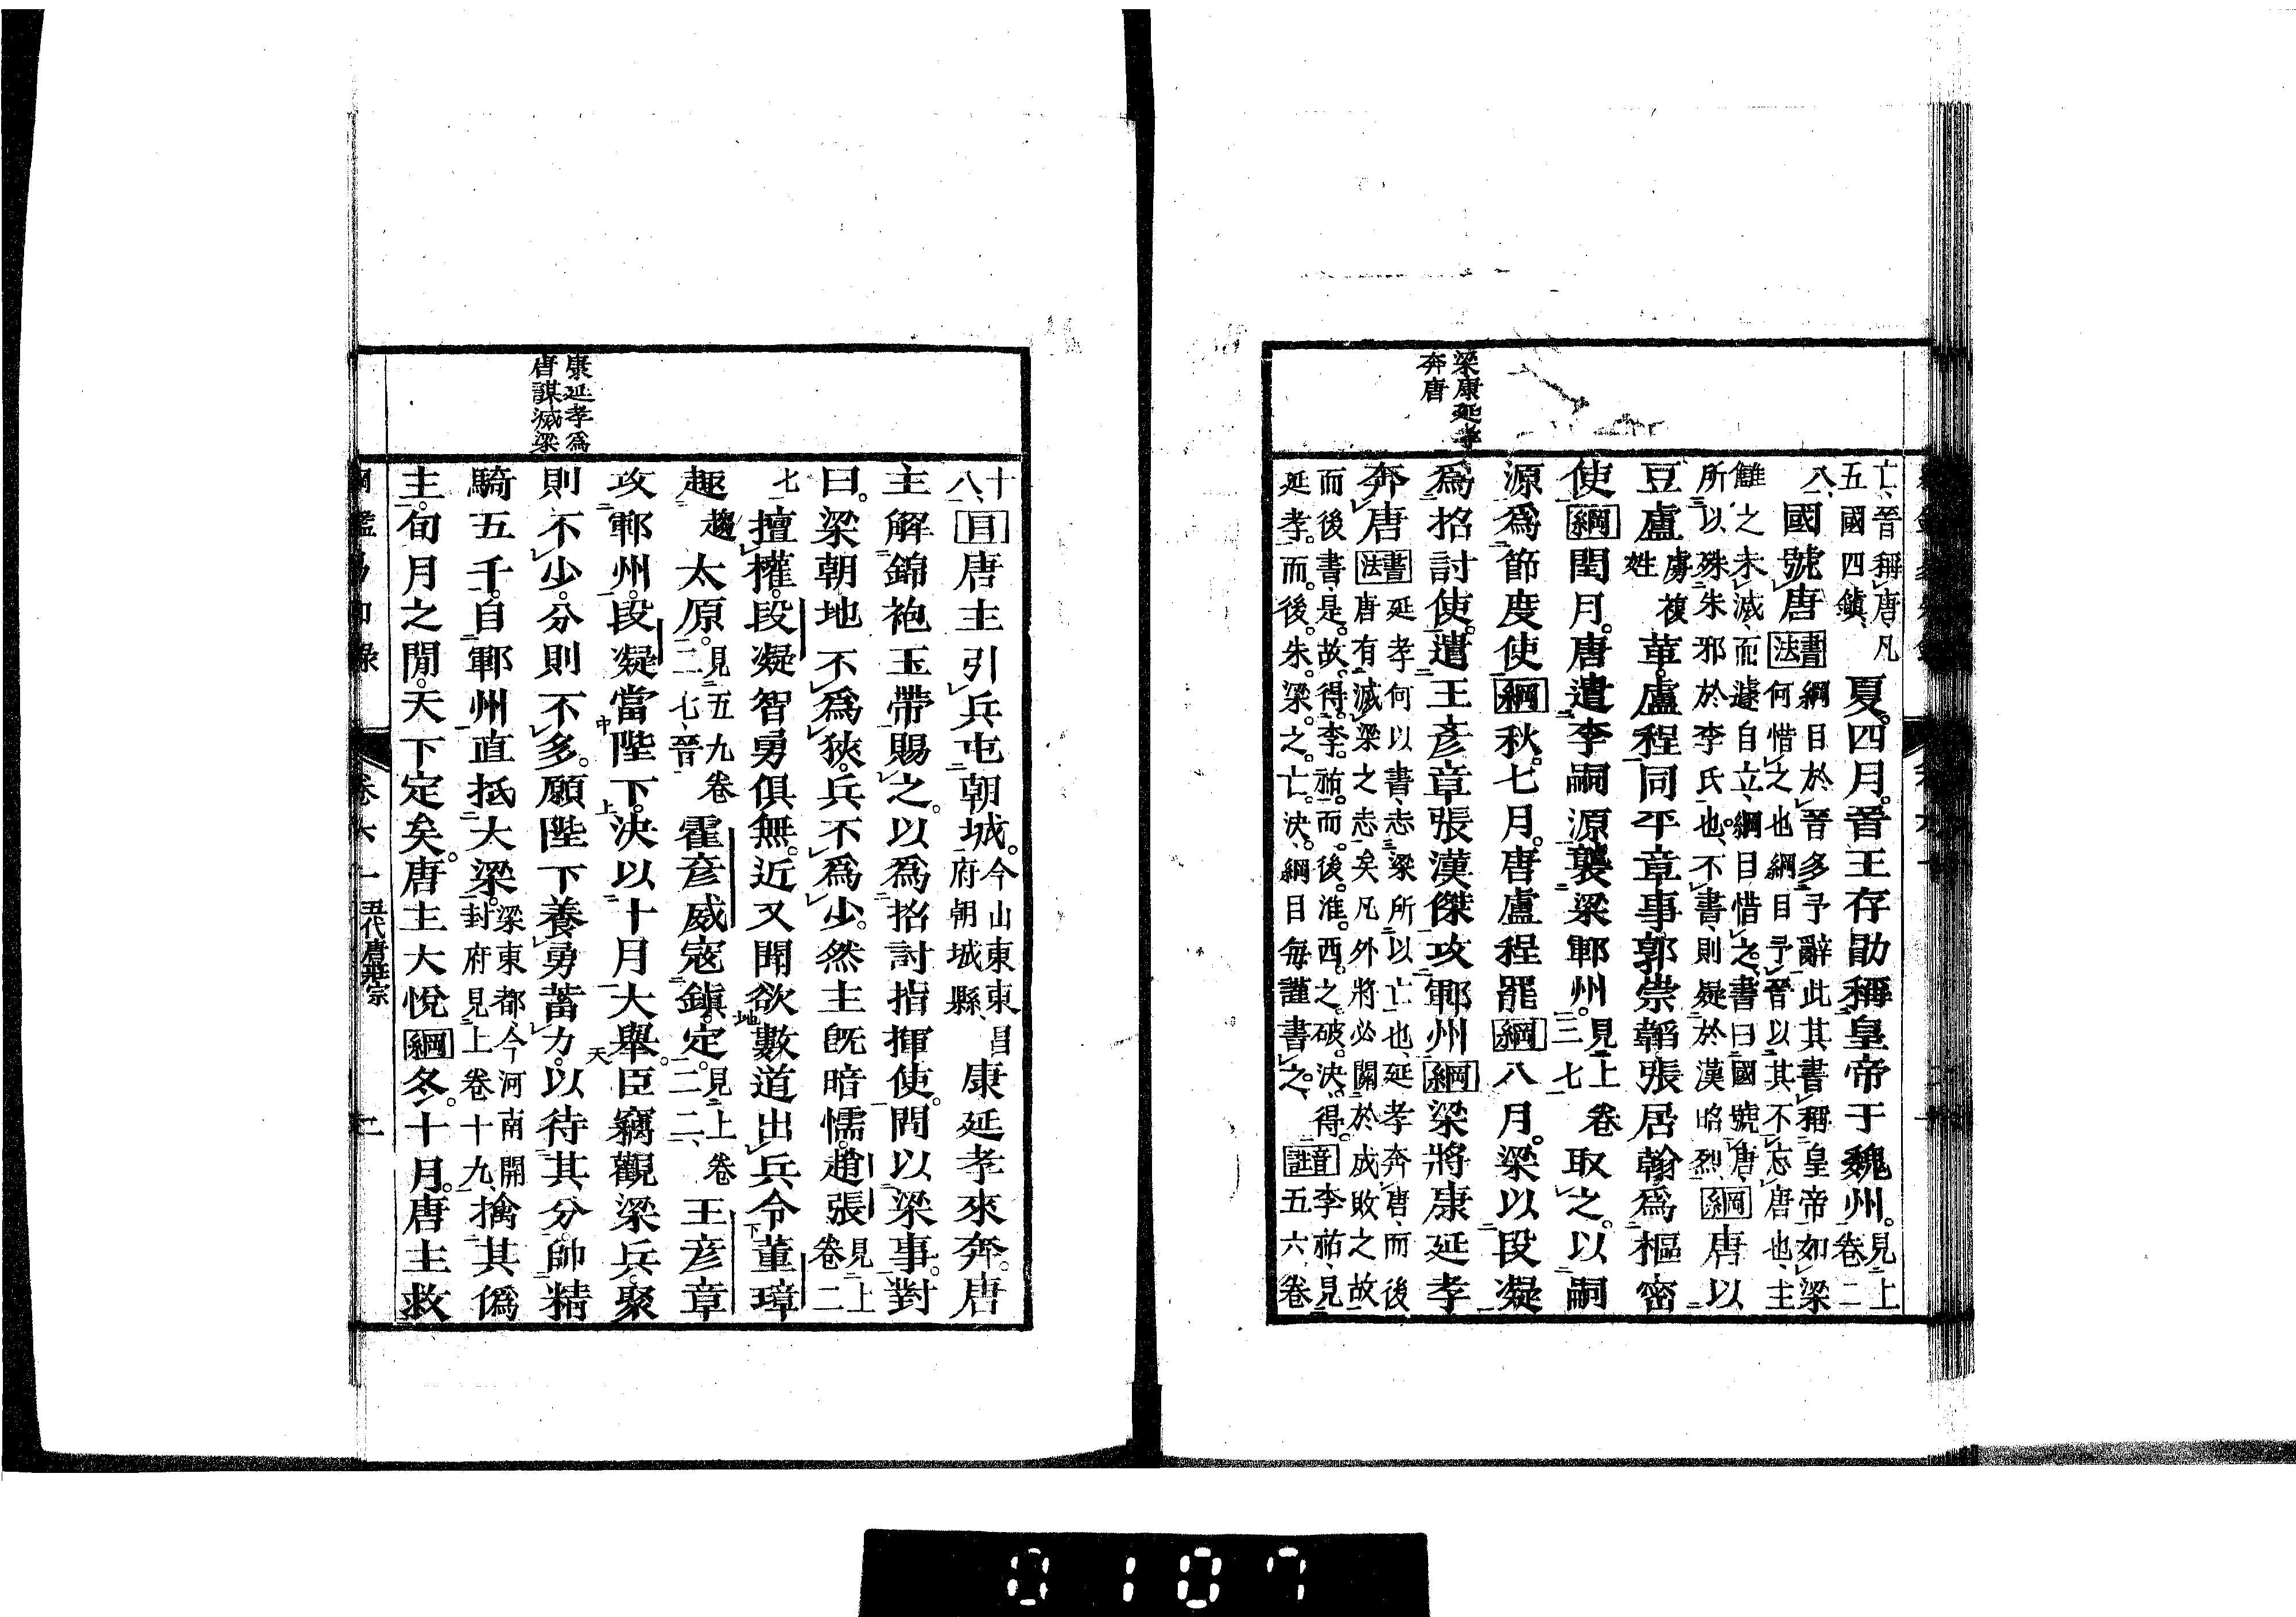 梁康延孝
奔唐
亡、晉稱唐、凡
五國四鎮、
夏。四月。晉王存勗稱皇帝于魏州。
見上
卷二
八、
國號唐
書
法
綱目於晉多予辭此其書稱皇帝如梁
何惜之也綱目予晉以其不忘唐也、主
讎之未滅、而遽自立、綱目惜之、書曰國號唐、
所以殊朱邪於李氏也、不書、則疑於漢昭烈、
綱唐以
豆盧
虜複
姓
革。盧程同平章事郭崇韜張居翰爲樞密
使綱閏月。唐遣李嗣源襲梁鄆州。
見上卷
三七
取之。以嗣
源爲節度使綱秋。七月。唐盧程罷綱八月。梁以段凝
爲招討使。遣王彥章張漢傑攻鄆州綱梁將康延孝
奔唐
書
法
延孝何以書、志梁所以亡也、延孝奔唐、而後
唐有滅梁之志矣凡外將必關於成敗之故
而後書、是。故。得。李。祐。而。後。淮。西。之。破。決、得。
延孝。而。後。朱。梁。之。亡。決、綱目每謹書之、
音
註
李祐、見
五六卷
十
八、
目唐主引兵屯朝城。
今山東東昌
府朝城縣、
康延孝來奔。唐
主解錦袍玉帶賜之。以爲招討指揮使。問以梁事。對
曰。梁朝地不爲狹。兵不爲少。然主旣暗懦。趙張
見上
卷二
七
擅權。段凝智勇俱無。近又聞欲數道出兵、令董璋
趣
趨
太原。
見五九卷
二七、晉
霍彥威寇鎮定。
見上卷
二二、
王彥章
攻鄆州。段凝當陛下。決以十月大舉。臣竊觀梁兵。聚
則不少。分則不多。願陛下養勇蓄力。以待其分。帥精
騎五千。自鄆州直抵大梁。
梁東都、今河南開
封府見上卷十九、
擒其僞
主。旬月之閒。天下定矣。唐主大悅綱冬。十月。唐主救
康延孝爲
唐謀滅梁
卷六一
五代唐莊宗
二
0107